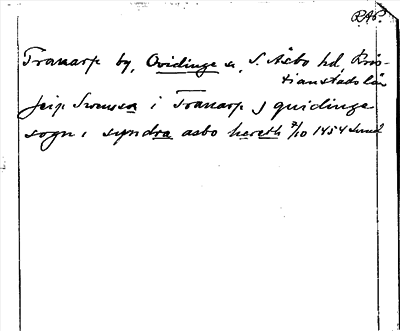 RAP.
Tranarp by, Qvidinge sn, S. Åsbo hd, Kris-
tianstads län
Jeip Swensen i Tranarp j quidinge
sogn i syndra asbo hereth 7/10 1454 Lund